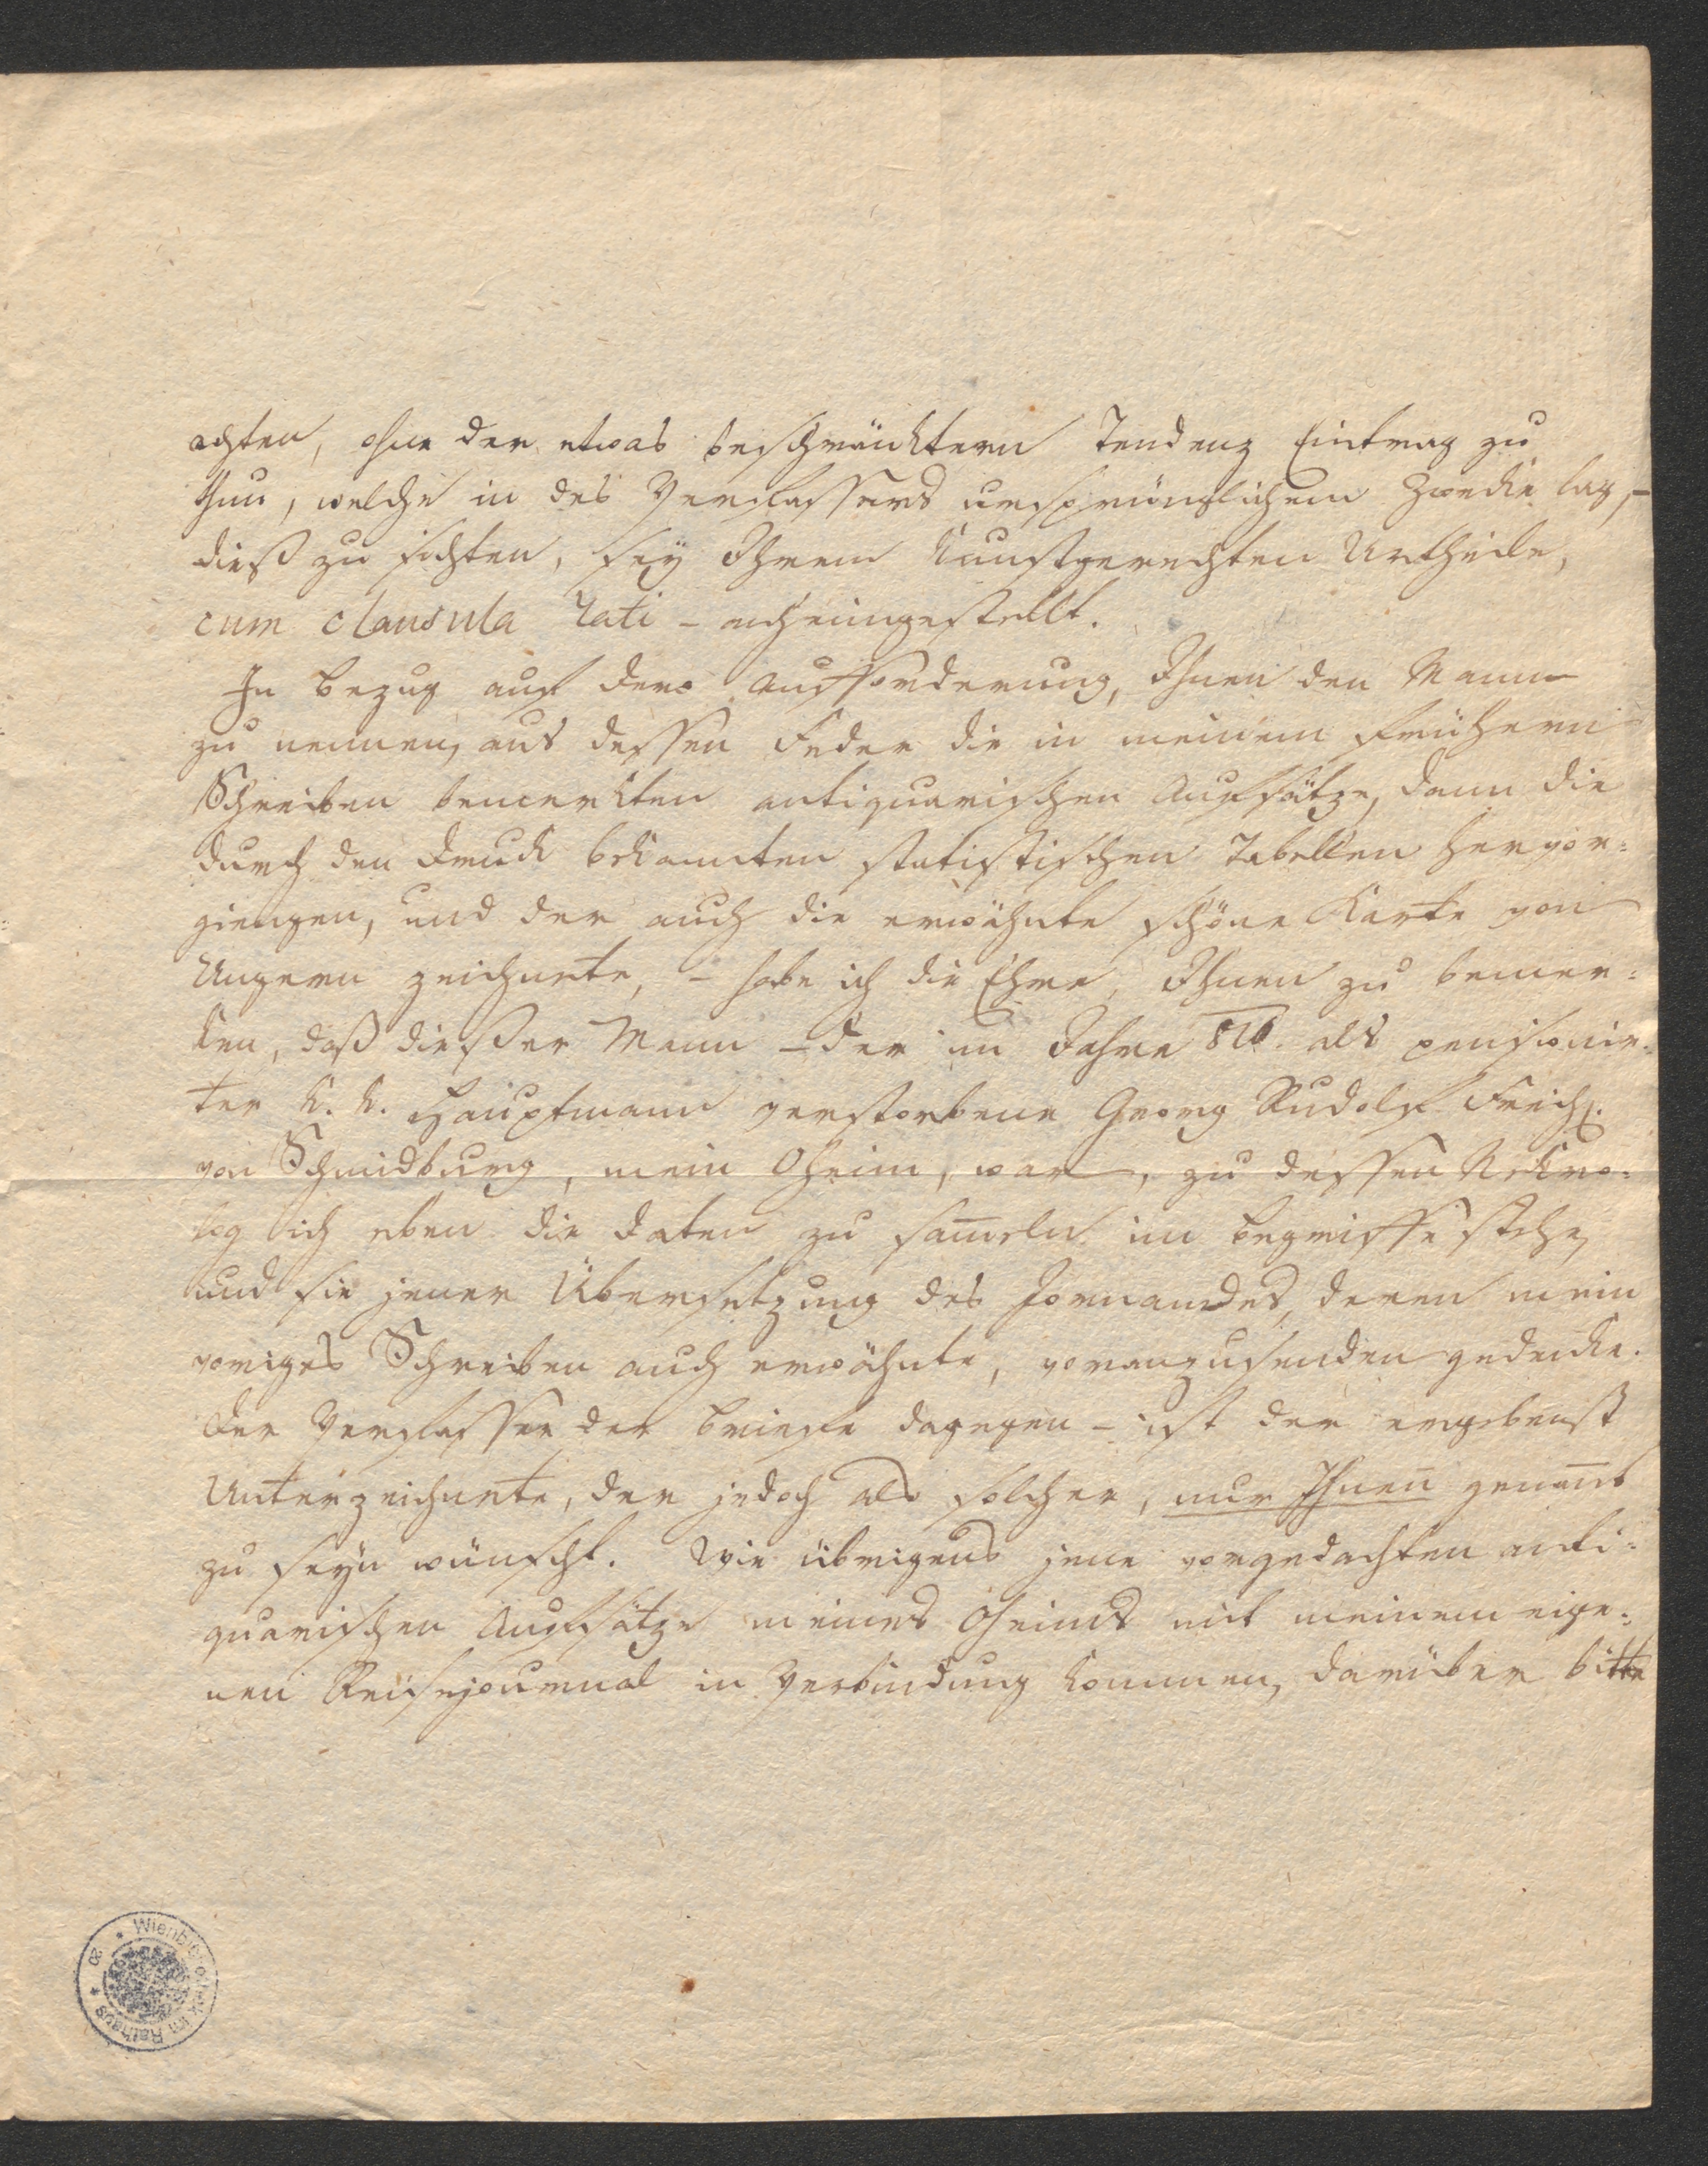 achten, ohne der etwas beschränktern Tendenz Eintrag zu
thun, welche in des Verfassers ursprünglichem Zwecke lag, –
dieß zu sichten, sey Ihrem kunstgerechten Urtheile,
cum clausula rati – anheimgestellt.
In Bezug auf dero Aufforderung, Ihnen den Mann
zu nennen, aus dessen Feder die in meinem frühern
Schreiben bemerkten antiquarischen Aufsätze, dann die
durch den Druck bekannten statistischen Tabellen hervor=
giengen, und der auch die erwähnte schöne Karte von
Ungern zeichnete, – habe ich die Ehre, Ihnen zu bemer=
ken, daß dießer Mann – der im Jahre als pensionir=
ter k. k. Hauptmann verstorbene Georg Rudolf Freih.
von Schmidburg, mein Oheim, war, zu dessen Nekro=
log ich eben die Daten zu sam̄eln im Begriffe stehe,
und sie jener Übersetzung des Jornandes, deren mein
voriges Schreiben auch erwähnte, voranzusenden gedenke.
Der Verfasser der Briefe dagegen – ist der ergebenst
Unterzeichnete, der jedoch als solcher, nur Ihnen genan̄t
zu seyn wünscht. Wie übrigens jene vorgedachten anti=
quarischen Aufsätze meines Oheims mit meinem eige=
nen Reisejournal in Verbindung kommen, darüber bitte
Wienbibliothek im Rathaus